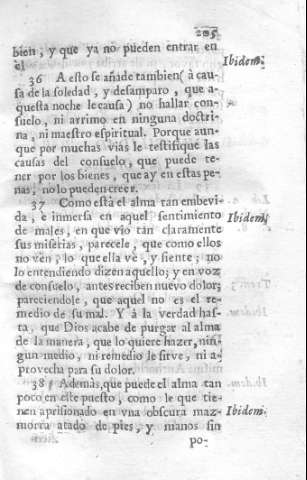 205
bien; y que ya no pueden entrar en
èl
Ibidem.
36 A esto se añade tambien ( à cau-
sa de la soledad, y desamparo, que a-
questa noche le causa ) no hallar con-
suelo, ni arrimo en ninguna doctri-
na, ni maestro espiritual. Porque aun-
que por muchas vias le testifiquè las
causas del consuelo, que puede te-
ner por los bienes, que ay en estas pe-
nas, no lo pueden creer.
37 Como està el alma tan embevi-
da, e inmersa en aquel sentimiento
Ibidem.
de males, en que viò tan claramente
sus miserias, parecele, que como ellos
no vèn, lo que ella vè, y siente; no
lo entendiendo dizen aquello; y en voz
de consuelo, antes reciben nuevo dolor;
pareciendole, que aquel no es el re-
medio de su mal. Y à la verdad has-
ta, que Dios acabe de purgar al alma
de la manera, que lo quiere hazer, nin-
gun medio, ni remedio le sirve, ni a-
provecha para su dolor.
38 Además, que puede el alma tan
poco en este puesto, como le que tie-
nen aprisionado en vna obscura maz-
Ibidem.
morra atado de pies, y manos sin
po-